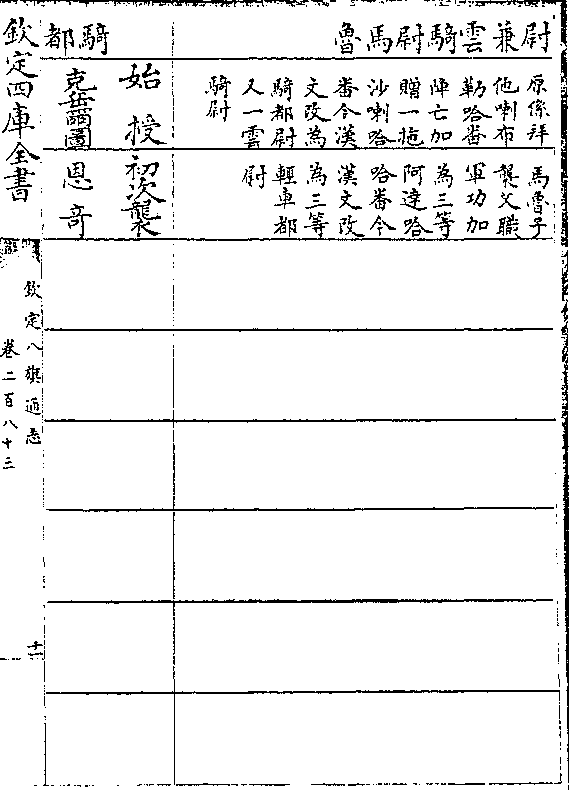 尉兼雲騎尉馬魯
原係拜
他喇布
勒哈番
陣亡加
贈一拖
沙喇哈
番今漢
文改為
騎都尉
又一雲
騎尉
馬魯子
襲父職
軍功加
為三等
阿達哈
哈番今
漢文改
為三等
輕車都
尉
騎都
始授
克岳爾圖
初次襲
恩奇
欽定四庫全書
欽定八旗通志
卷二百八十三
十一